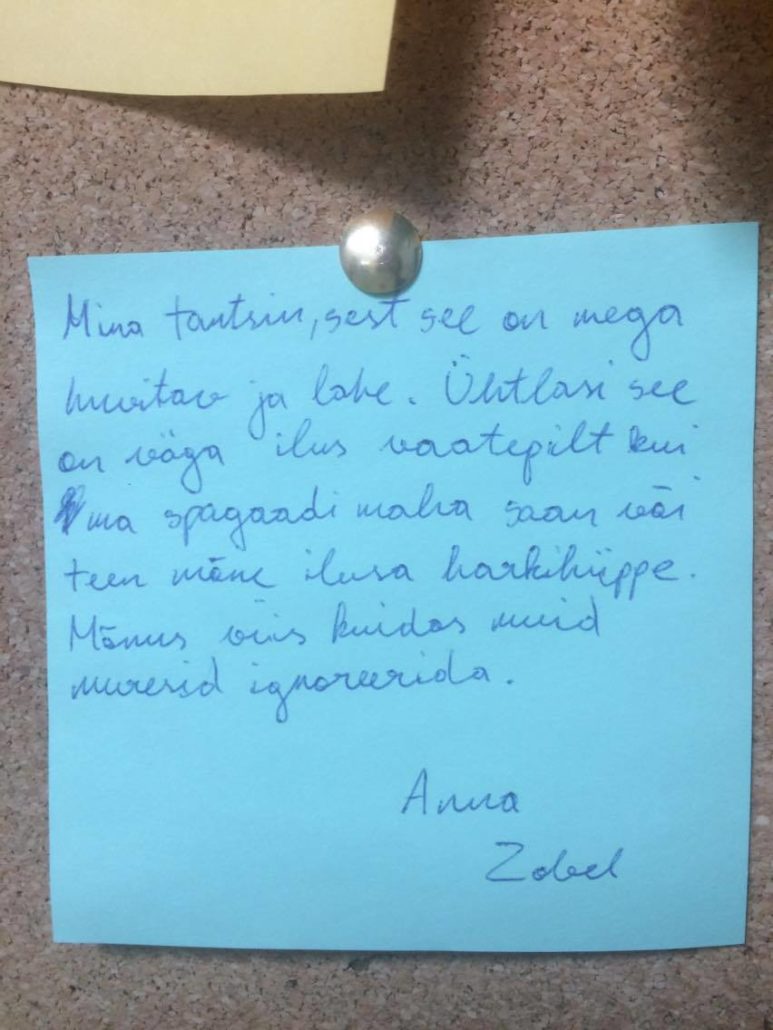 Mina tantsin, sest see on mega
huvitav ja lahe. Ühtlasi see
on väga ilus vaatepilt kui
ma spagaadi maha saan või
teen mõne ilusa harkihüppe.
Mõnus viis kuidas muid
muresid ignoreerida.
Anna
Zobel